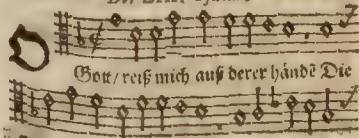 O
Gott/reiß mich auß derer händē Die